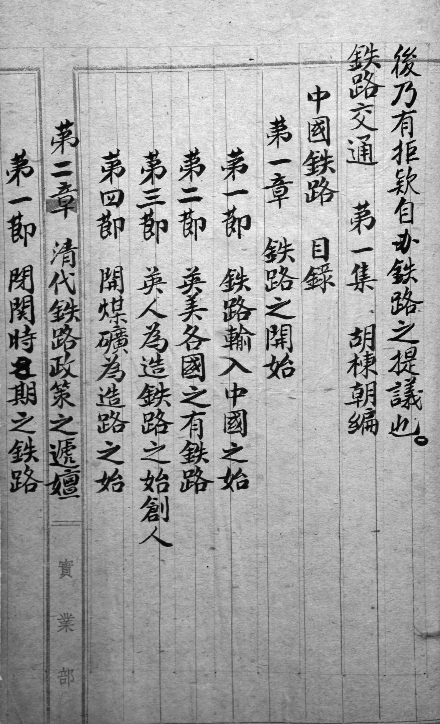 後乃有拒欵自办鉄路之提議也。
鉄路交通 第一集 胡棟朝編
中國鉄路 目録
第一章 鉄路之開始
第一節 鉄路輸入中國之始
第二節 英美各國之有鉄路
第三節 英人為造鉄路之始創人
第四節 開煤礦為造路之始
第二章 清代鉄路政策之遞嬗
第一節 閉関時期之鉄路
實業部